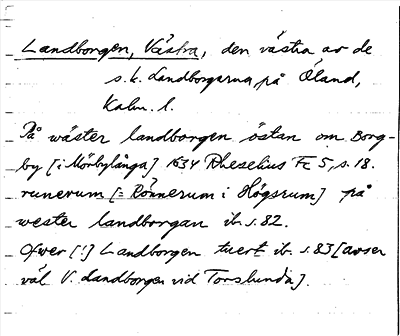 Landborgen, Västra, den västra av de
s.k. Landborgarna på Öland,
Kalm. l.
På wäster landborgen östan om Borg-
by [i Mörbylånga] 1634 Rhezelius Fc 5, s. 18.
runerum [= Rönnerum i Högsrum] på
wester landborgan ib. s. 82.
Ofwer [!] Landborgen twert ib. s. 83 [avser
väl V. Landborgen vid Torslunda].